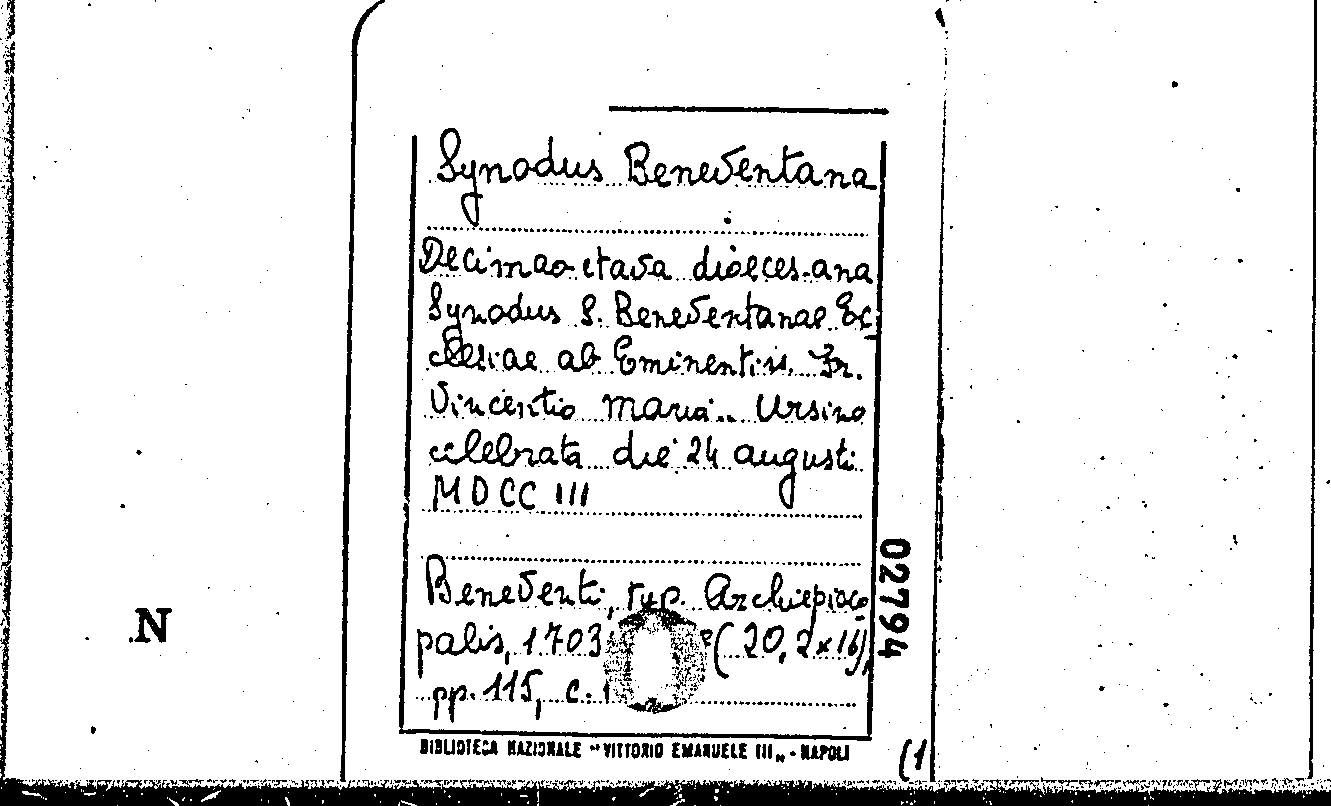 Synodus Beneventana
Decimaoctava dioecesana
Synodus S. Beneventanae Ec
clesiae ab Eminentiss. Fr.
Vincentio Maria Ursino
celebrata die 24 augusti
MDCCIII
Beneventi, typ. Archiepisco
palis, 1703 (20,2x16),
pp. 115, c.
BIBLIOTECA NAZIONALE "VITTORIO EMANUELE III" - NAPOLI
02794
N
(1